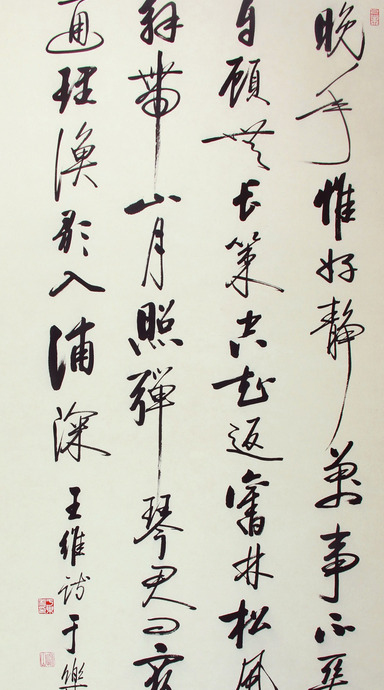 晚年惟好靜萬事不關
自顧無長策空知返舊林松風
解帶山月照彈琴君問窮
通理漁歌入浦深王維詩于樂